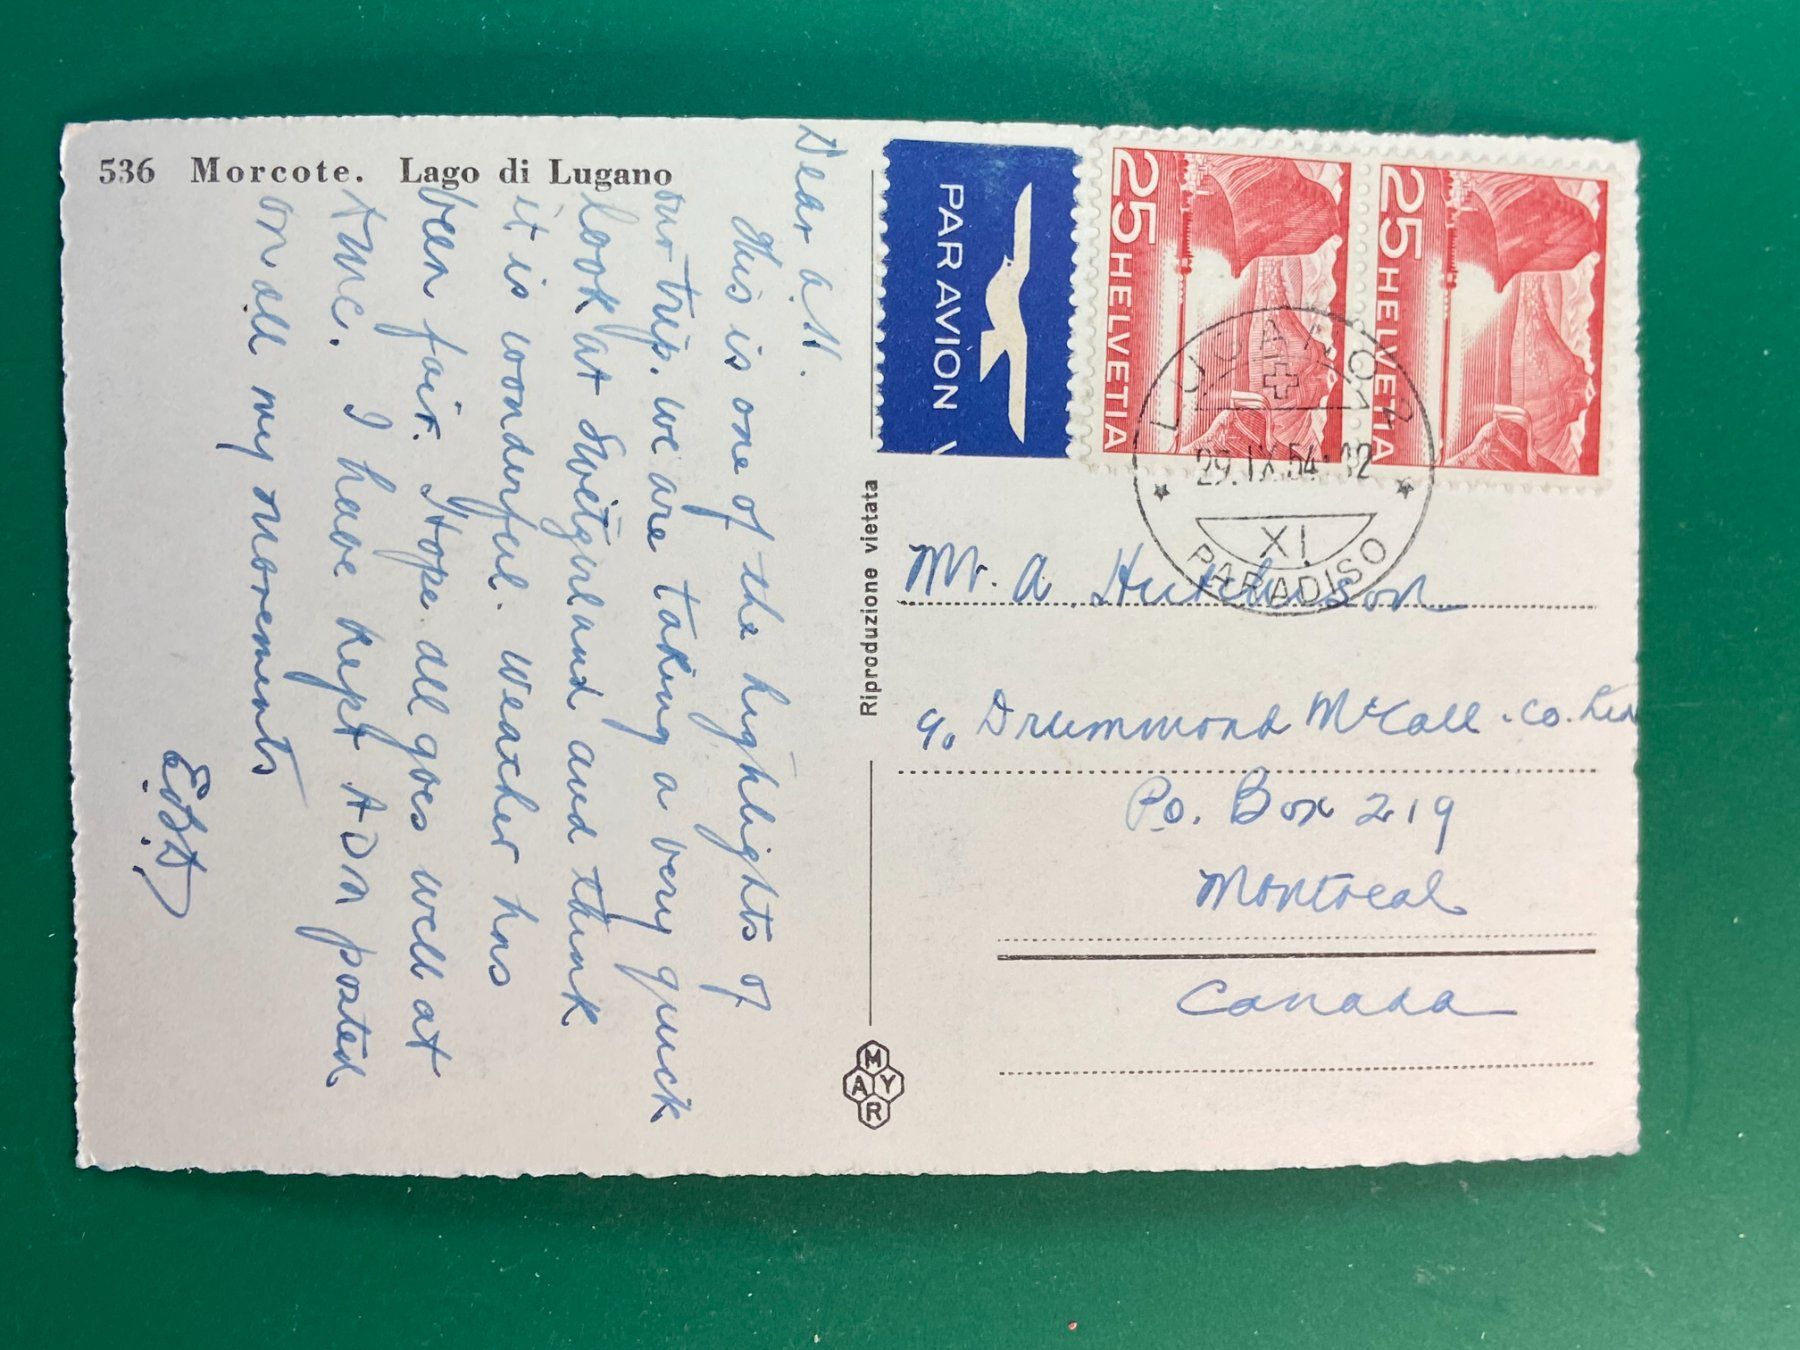 536 Morcote. Lago di Lugano
Dear A.H.
This is one of the highlights of
our trip. We are taking a very quick
look at Switzerland and think
it is wonderful. Weather has
been fair. Hope all goes well at
I have kept ADM posted
on all my movements
Riproduzione vietata
MAYR
PAR AVION
25 HELVETIA
25 HELVETIA
LUGANO 2
29.IX.54.12
XI
PARADISO
Mr. A. Hutchison
c/o Drummond McCall. Co. Ltd
P.O. Box 219
Montreal
Canada